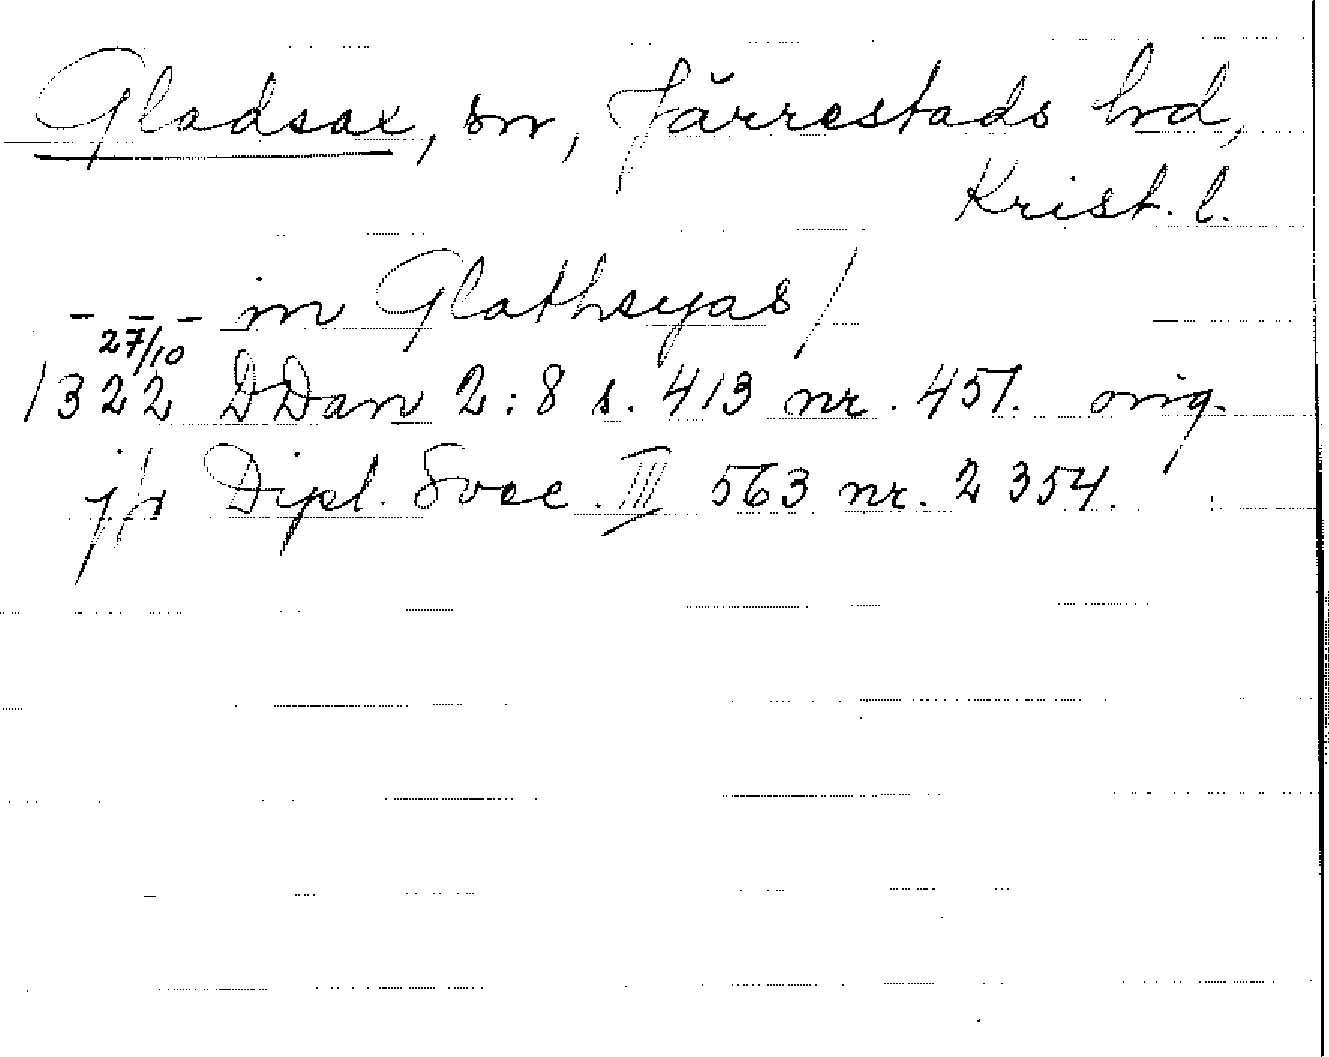 Gladsax, sn, Järrestads hd,
Krist. l.
- - - in Glathsyas/
27/10
1322 DDan 2:8 s. 413 nr. 457. orig.
jfr Dipl. Svec. III 563 nr. 2354.